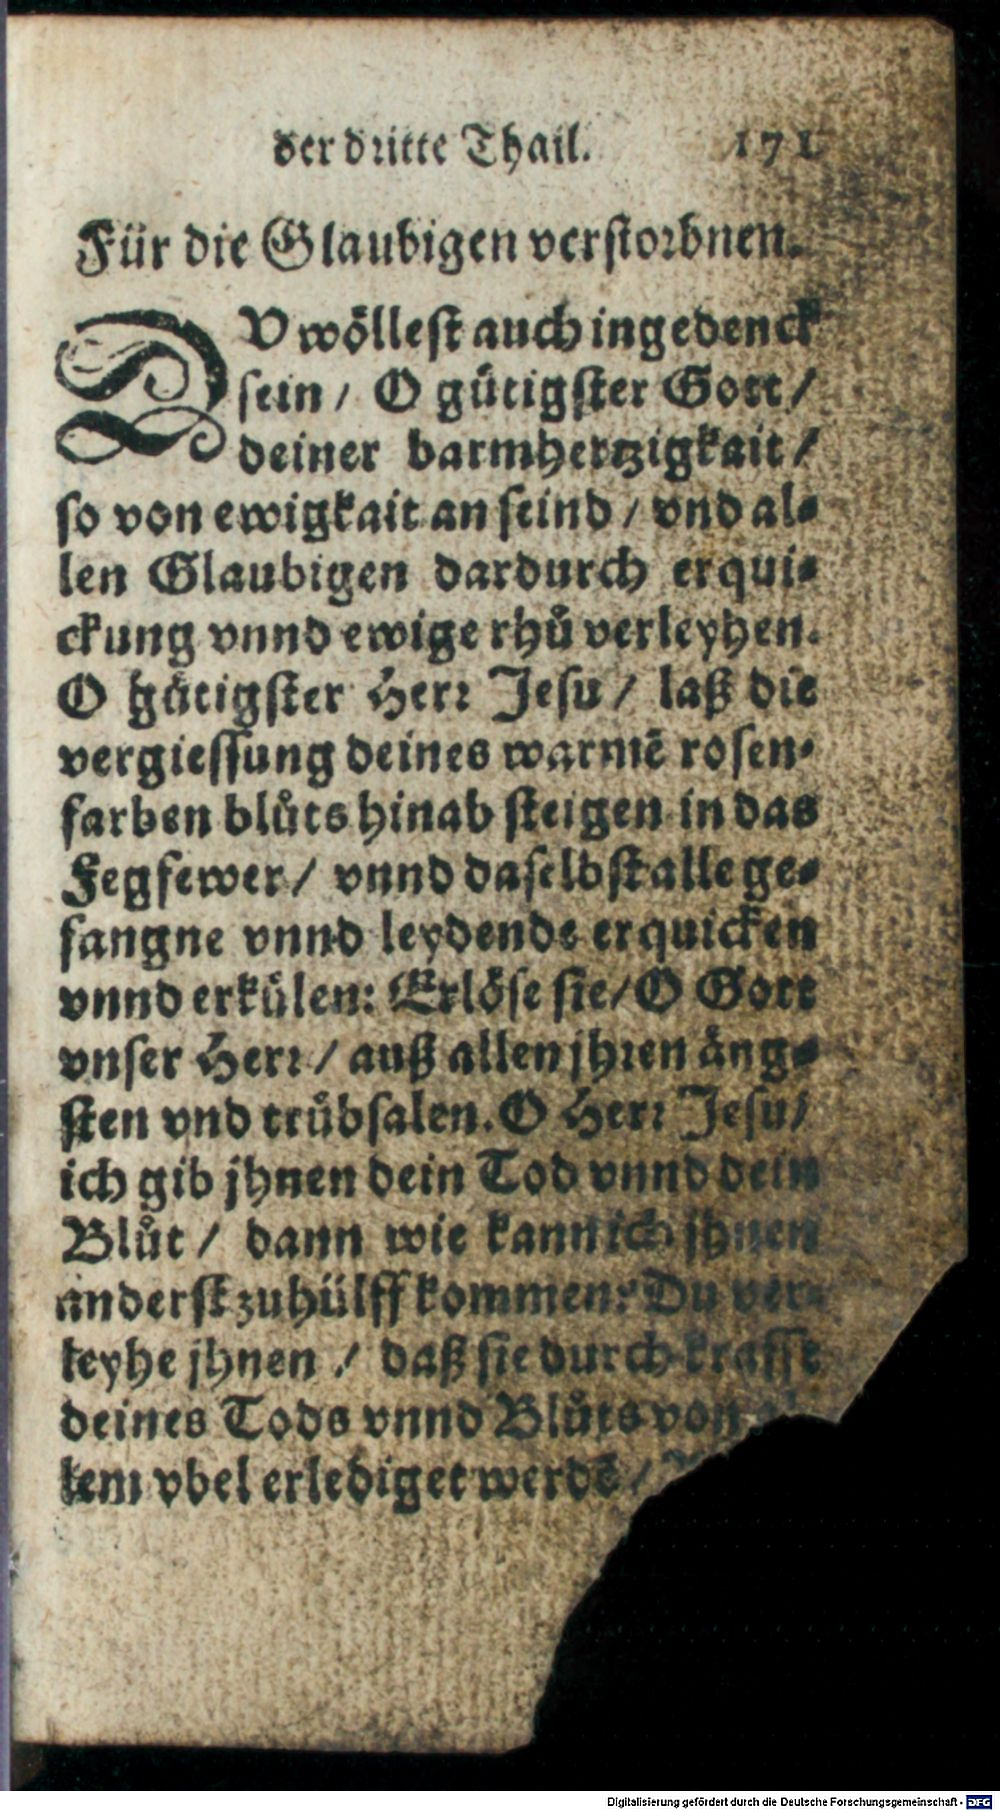 der dritte Thail. 171
Für die Glaubigen verstorbnen.
DV wöllest auch ingedenck
sein / O gütigster Gott /
deiner barmhertzigkait /
so von ewigkait an seind / vnd al⸗
len Glaubigen dardurch erqui⸗
ckung vnnd ewige rhů verleyhen.
O gütigster Herr Jesu / laß die
vergiessung deines warmē rosen⸗
farben blůts hinab steigen in das
Fegfewer / vnnd daselbst alle ge⸗
fangne vnnd leydende erquicken
vnnd erkülen: Erlöse sie / O Gott
vnser Herr / auß allen jhren äng⸗
sten vnd trůbsalen. O Herr Jesu /
ich gib jhnen dein Tod vnnd dein
Blůt / dann wie kann ich jhnen
anderst zu hülff kommen? Du ver⸗
leyhe jhnen / daß sie durch krafft
deines Tods vnnd Blůts von al⸗
lem vbel erlediget werdē /
Digitalisierung gefördert durch die Deutsche Forschungsgemeinschaft - DFG